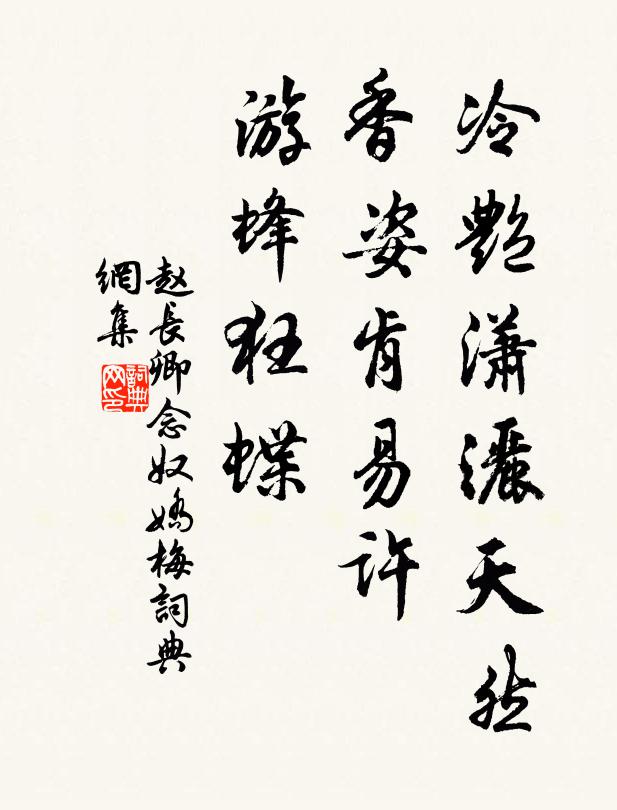 冷艷瀟灑天然
香姿肯易許
游蜂狂蝶
赵長卿念奴嬌梅詞典
網集
詞典
网印